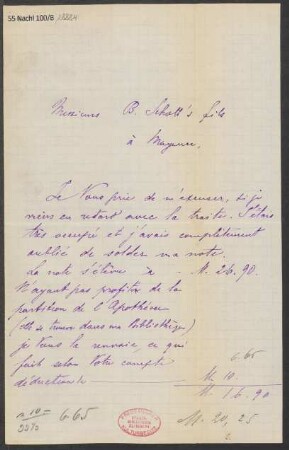 55 Nachl 100/B
Messieurs B. Schott's fils
à Mayence.
Je Vous prie de m'excuser, si je
viens en retard avec la traite. J'étais
très occupé et j'avais complètement
oublié de solder ma note.
La note s'élève à - M. 26.90.
N'ayant pas profiter de la
partition de l'Apothéose
(elle se trouve dans ma bibliothèque)
je vous la renvoie, ce qui
fait selon Votre compte
6.65
déduction de M. 10
M. 16.90
n 10 =
33 1/3 6 65
M. 20, 25